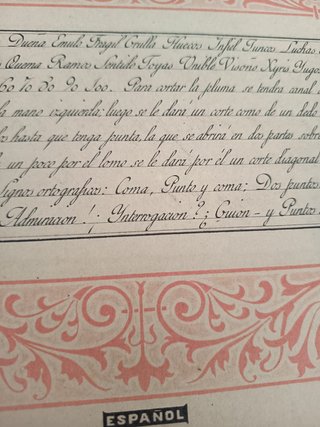 Duena Emulo Fragil Grulla Huecos Infiel Juncos Luchas
Quema Ramos Sentido Toyas Unible Visoño Xyris Yugo
60 70 80 90 100. Para cortar la pluma se tendra canal
la mano izquierda; luego se le dará un corte como de un dedo
hasta que tenga punta, la que se abrirá en dos partes sobre
un poco por el lomo se le dará por él un corte diagonal
Signos ortograficos: Coma, Punto y coma; Dos puntos
Admiracion ! ¡ Interrogacion ? ¿ Guion - y Puntos
ESPAÑOL